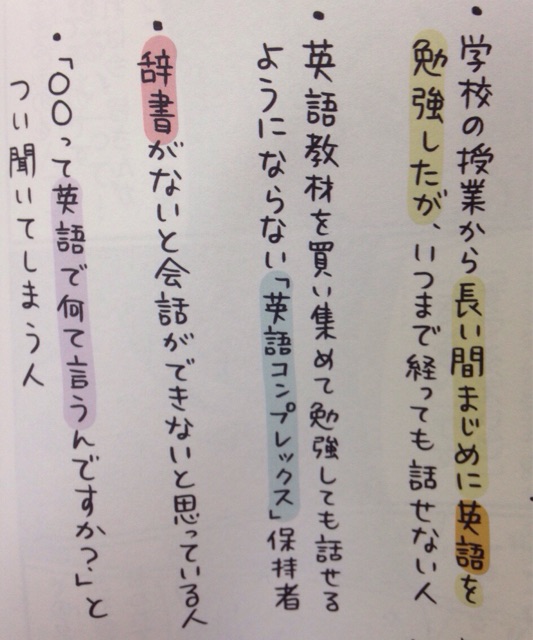 ・学校の授業から長い間まじめに英語を
勉強したが、いつまで経っても話せない人
・英語教材を買い集めて勉強しても話せる
ようにならない「英語コンプレックス」保持者
・辞書がないと会話ができないと思っている人
・「〇〇って英語で何て言うんですか?」と
つい聞いてしまう人